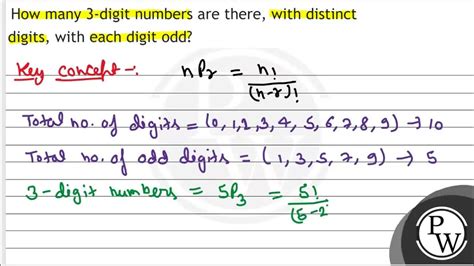 How many 3-digit numbers are there, with distinct
digits, with each digit odd?
Key concept-:
nPr = n!/(n-r)!
Total no. of digits = (0, 1, 2, 3, 4, 5, 6, 7, 8, 9) → 10
Total no. of odd digits = (1, 3, 5, 7, 9) → 5
3-digit numbers = 5P3 = 5!/(5-2)
PW